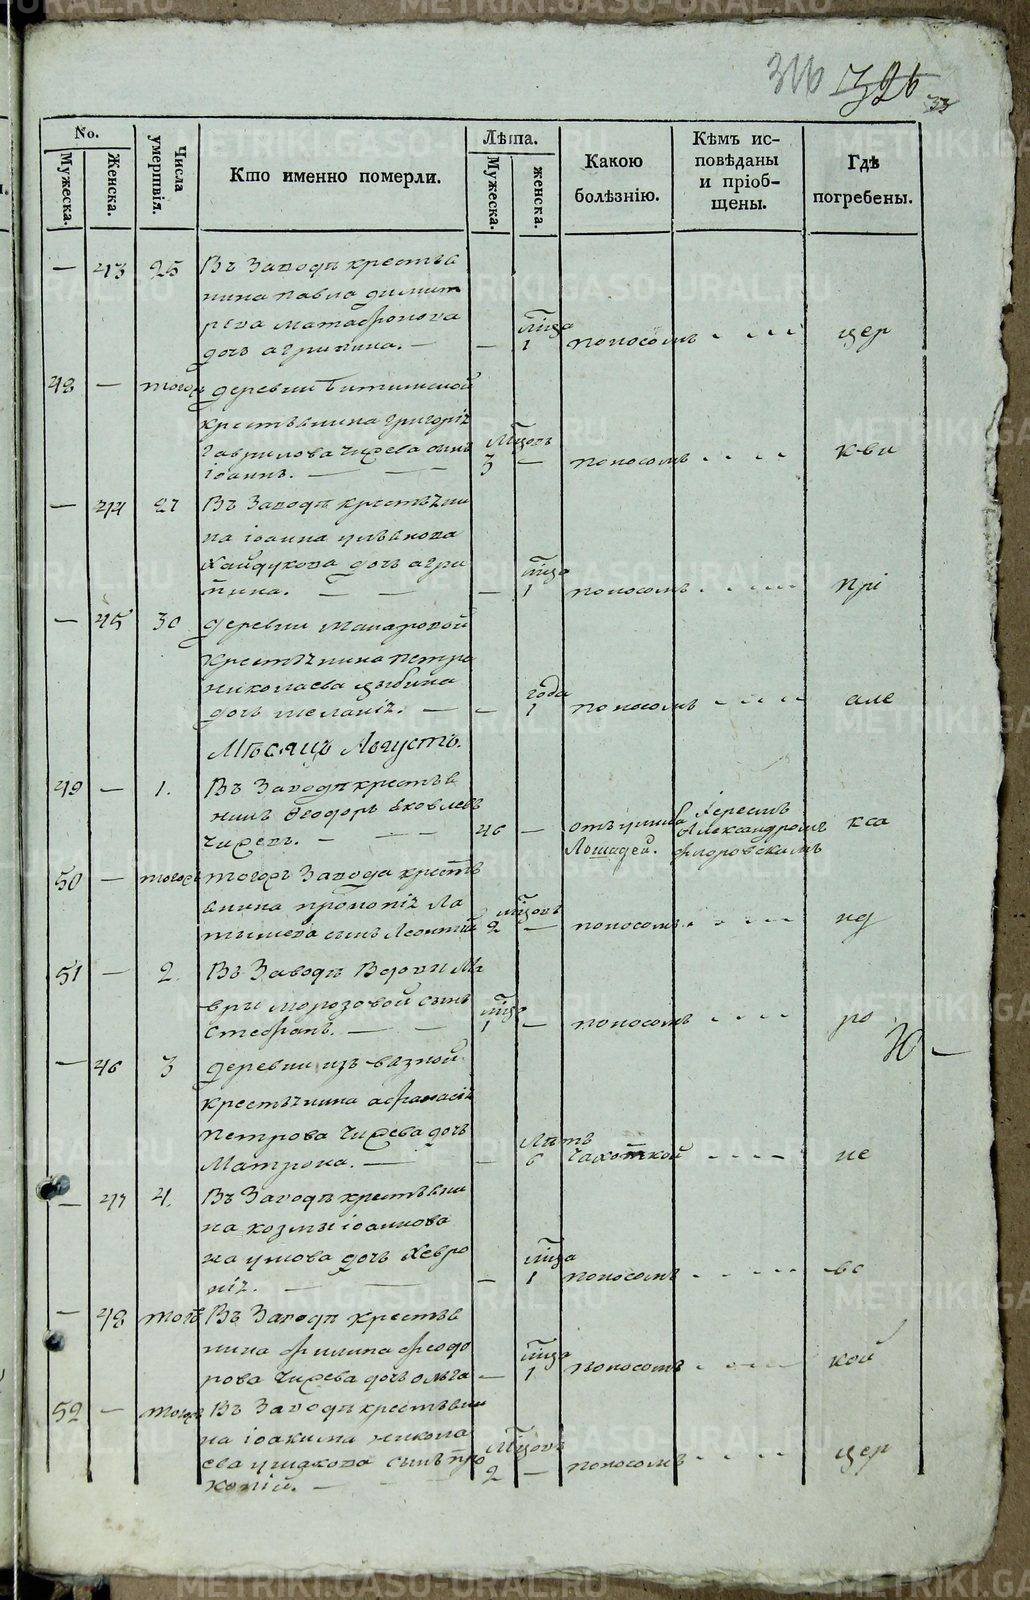 316 326
33
No. Числа умертвія. Кто именно померли. Лѣта. Какою болѣзнію. Кѣмъ исповѣданы и пріобщены. Гдѣ погребены.
Мужеска. Женска. Мужеска. женска.
— 43 25 Въ Заводѣ крестья
нина павла димит
рева Матафонова
дочь агрипина. — — мѣся 1 поносомъ цер
48 — того деревни
крестьянина григорія
гаврилова Чирева сынъ
іоаннъ. — мѣсцовъ 3 — поносомъ кви
— 44 27 Въ Заводѣ крестьяни
на іоанна ульянова
Хайдукова дочь агри
пина. — — 1 поносомъ при
— 45 30 деревни Макаровой
крестьянина петра
николаева цыбина
дочь меланія. — — года 1 поносомъ але
Мѣсяцъ Августъ.
49 — 1. Въ Заводѣ крестья
нинъ Феодоръ яковлевъ
Чиревъ. — 46 — отъ ушиба Лошадей. Іереемъ Александромъ флоровскимъ кса
50 — тогожъ тогожъ Завода крестья
янина прокопія Ла
тышева сынъ Леонтій мѣсцовъ 2 — поносомъ нд
51 — 2. Въ Заводѣ Вдовы Ма
вры морозовой сынъ
Стефанъ. — 1 — поносомъ ро
— 46 3 деревни изъ-вазной
крестьянина афанасія
петрова Чирева дочь
Матрона. — — Лѣтъ 6 Чахоткой не
— 47 4. Въ Заводѣ крестьяни
на козмы іоаннова
наумова дочь Хевро
нія. — — 1 поносомъ вс
— 48 тогожъ Въ Заводѣ крестья
нина филипа феодо
рова Чирева дочь ольга — 1 поносомъ кой
52 — тогожъ Въ Заводѣ крестьяни
на іоакима никола
ева ушакова сынъ про
копій. — мѣсцовъ 2 — поносомъ цер
METRIKI.GASO-URAL.RU